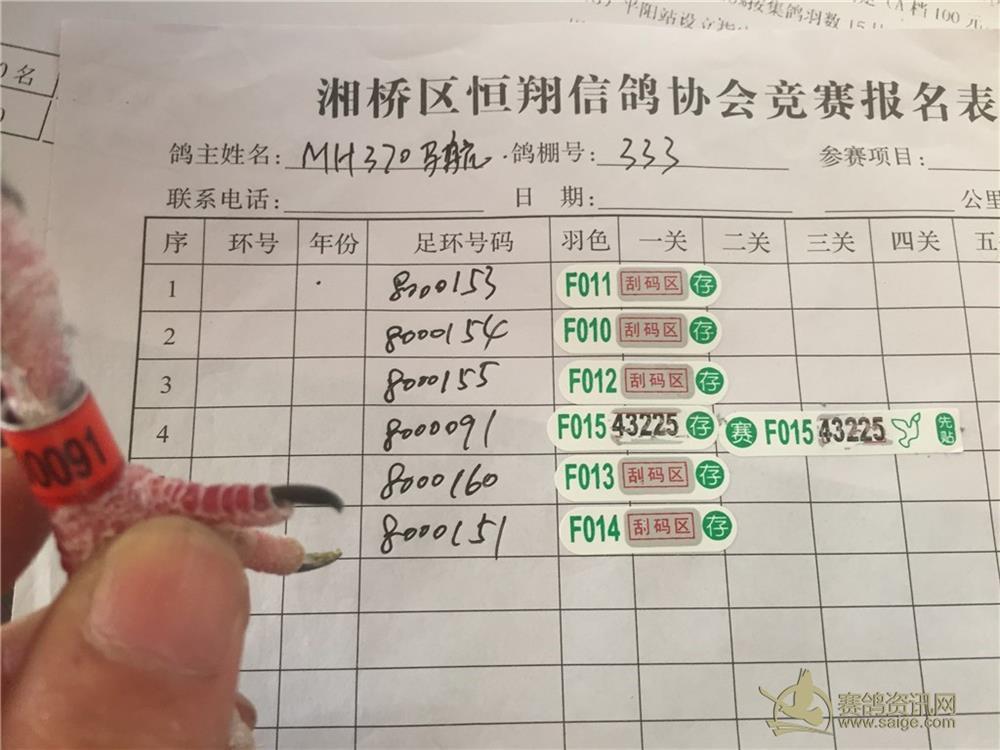 平阳站设立指
集鸽羽数15
(A档100元
0名
湘桥区恒翔信鸽协会竞赛报名表
鸽主姓名: MH370马航 鸽棚号: 333 参赛项目:
联系电话: 日 期: 公里
序 环号 年份 足环号码 羽色 一关 二关 三关 四关 五
1 8000153 F011 刮码区 存
2 8000154 F010 刮码区 存
3 8000155 F012 刮码区 存
4 8000091 F015 43225 存 赛 F015 43225 先贴
8000160 F013 刮码区 存
8000151 F014 刮码区 存
0091
赛鸽资讯网
www.saige.com